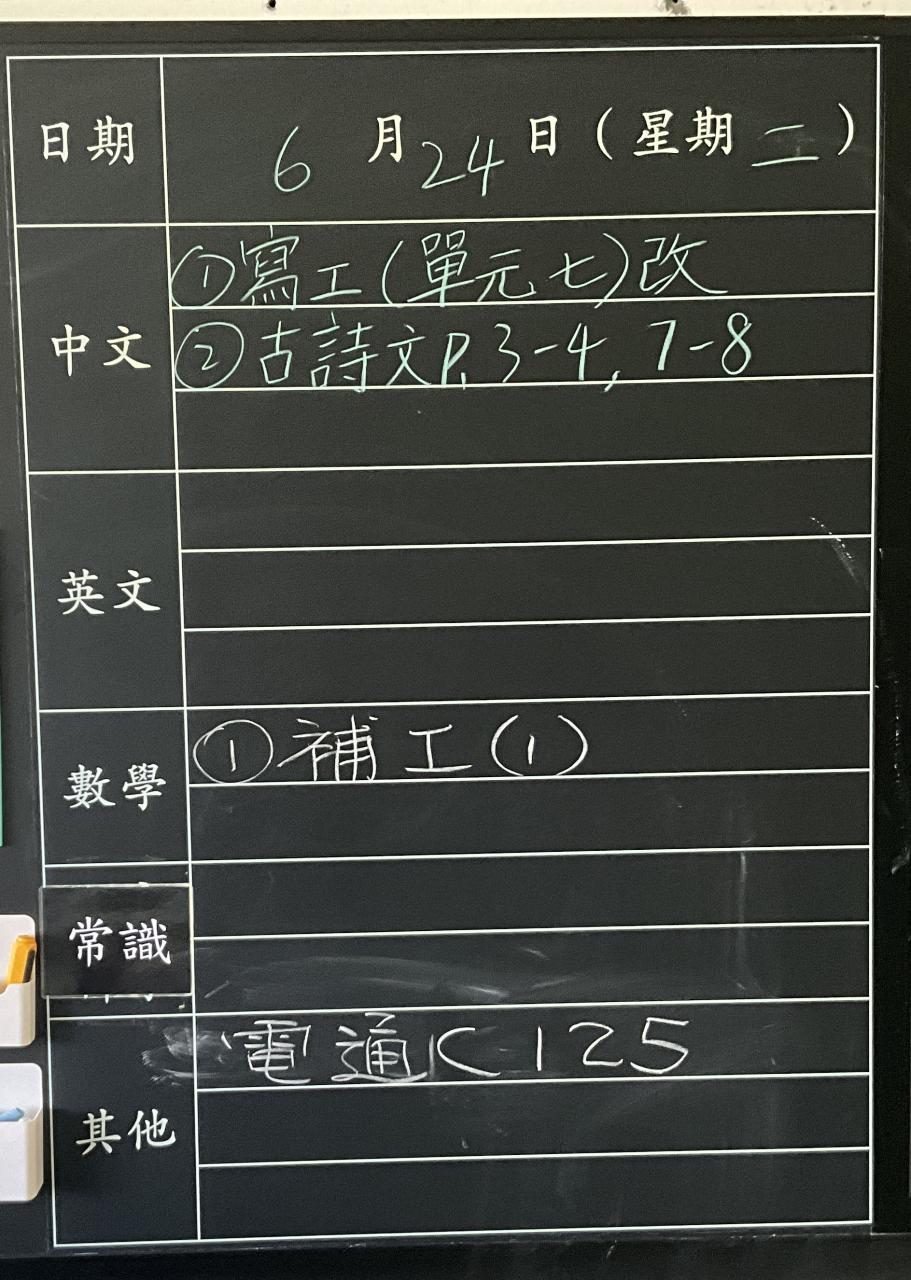 日期 6月24日(星期二)
中文
①寫工(單元七)改
②古詩文P.3-4, 7-8
英文
數學 ①補工(1)
常識
電通K125
其他